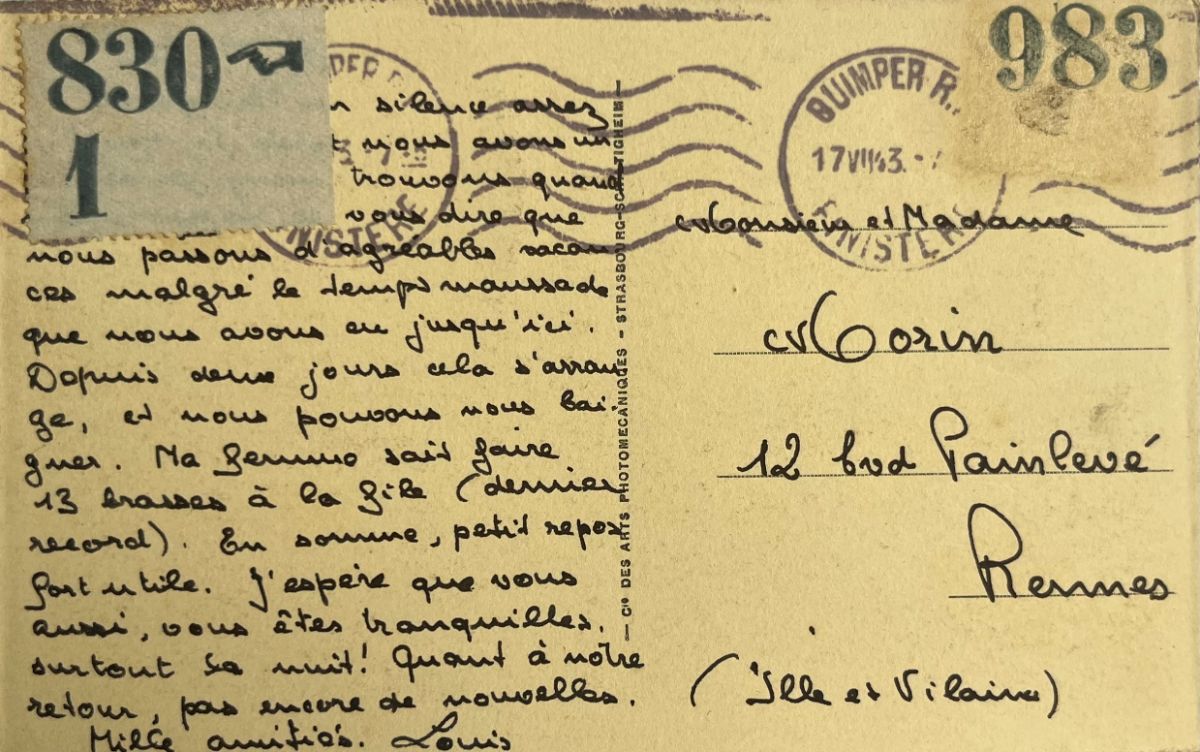 830
1
983
QUIMPER R.
17 VII 43.
FINISTERE
silence assez
nous avons un
trouvons quand
vous dire que
nous passons d'agréables vacan
ces malgré le temps maussade
que nous avons eu jusqu'ici.
Depuis deux jours cela s'arran
ge, et nous pouvons nous bai-
gner. Ma femme sait faire
13 brasses à la file (dernier
record). En somme, petit repos
fort utile. J'espère que vous
aussi, vous êtes tranquilles,
surtout la nuit! Quant à notre
retour, pas encore de nouvelles.
Mille amitiés. Louis
— Cie DES ARTS PHOTOMECANIQUES - STRASBOURG-SCHILTIGHEIM —
Monsieur et Madame
Morin
12 bvd Painlevé
Rennes
(Ille et Vilaine)